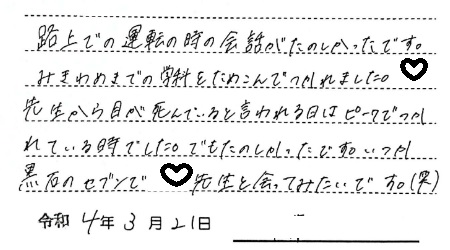 路上での運転の時の会話がたのしかったです。
みきわめまでの学科をためこんでつかれました。♡
先生から目が死んでいると言われる日はピークでつか
れている時でした。でもたのしかったです。いつか
黒石のセブンで♡先生と会ってみたいです。(笑)
令和 4年 3月 21日